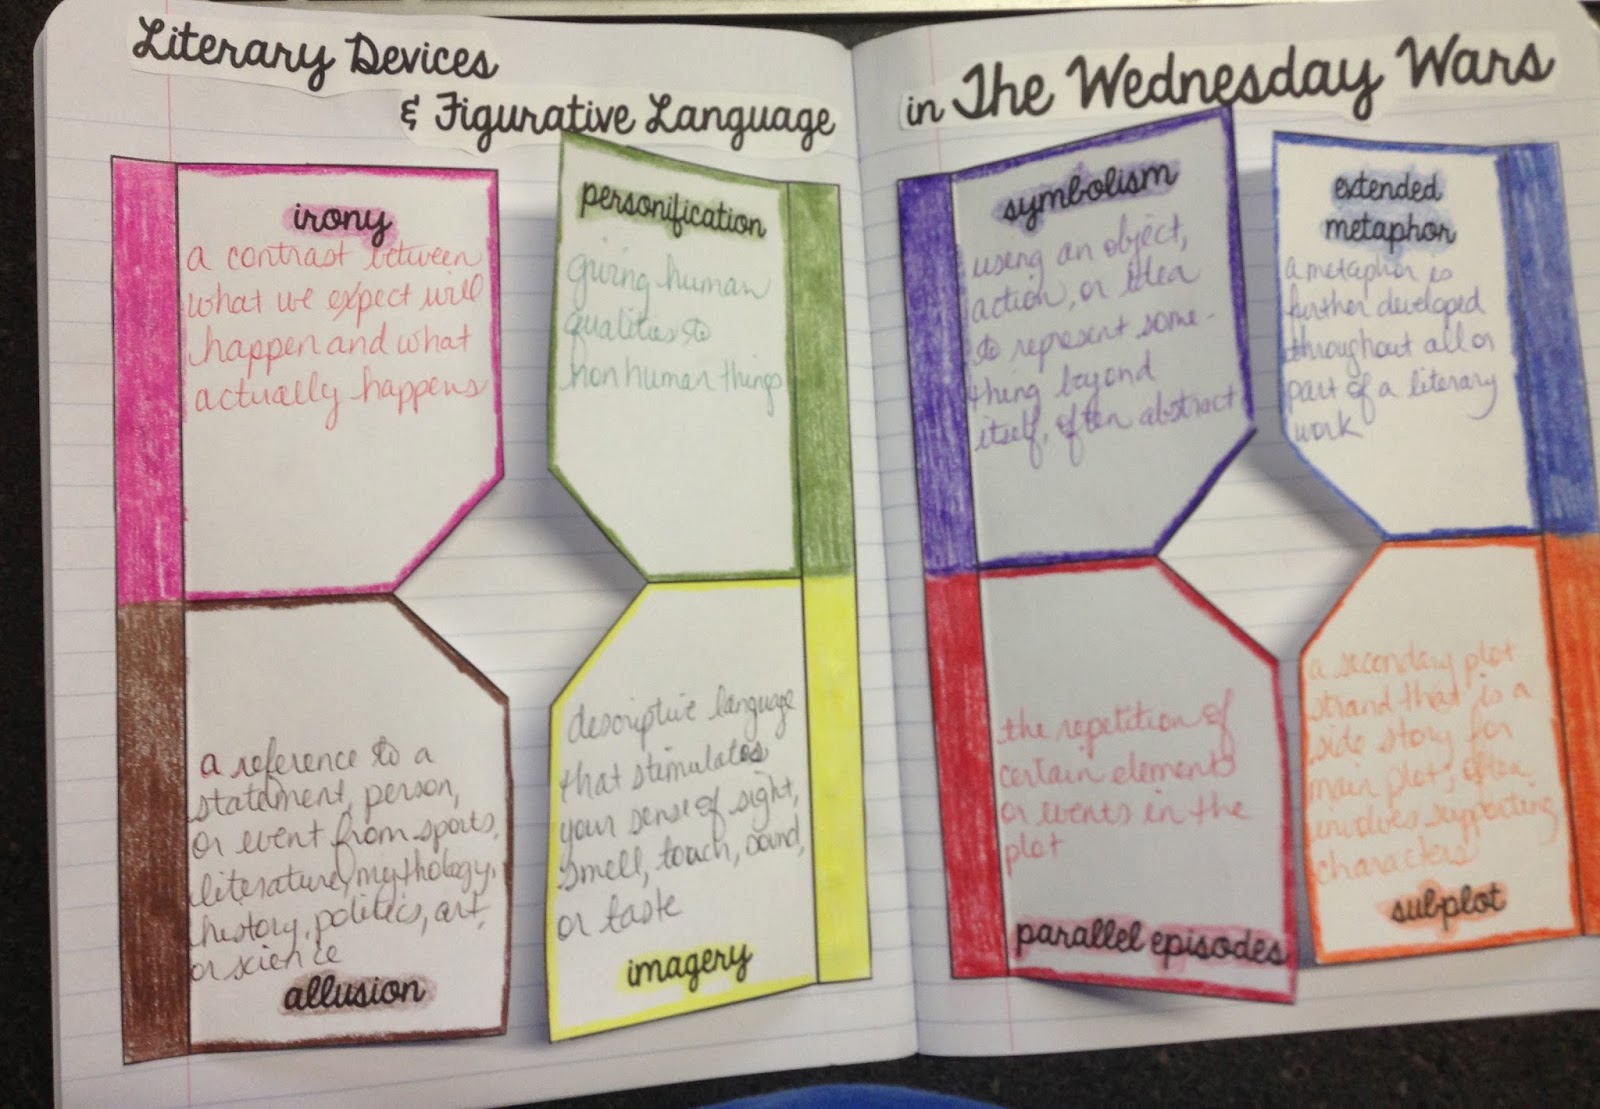 Literary Devices
& Figurative Language
in The Wednesday Wars
irony
a contrast between
what we expect will
happen and what
actually happens
personification
giving human
qualities to
nonhuman things
a reference to a
statement, person,
or event from sports,
literature, mythology,
history, politics, art,
or science
allusion
descriptive language
that stimulates
your sense of sight,
smell, touch, sound,
or taste
imagery
symbolism
using an object,
action, or idea
to represent some-
thing beyond
itself, often abstract
extended
metaphor
a metaphor is
further developed
throughout all or
part of a literary
work
the repetition of
certain elements
or events in the
plot
parallel episodes
a secondary plot
strand that is a
side story for
main plot; often
involves supporting
characters
subplot